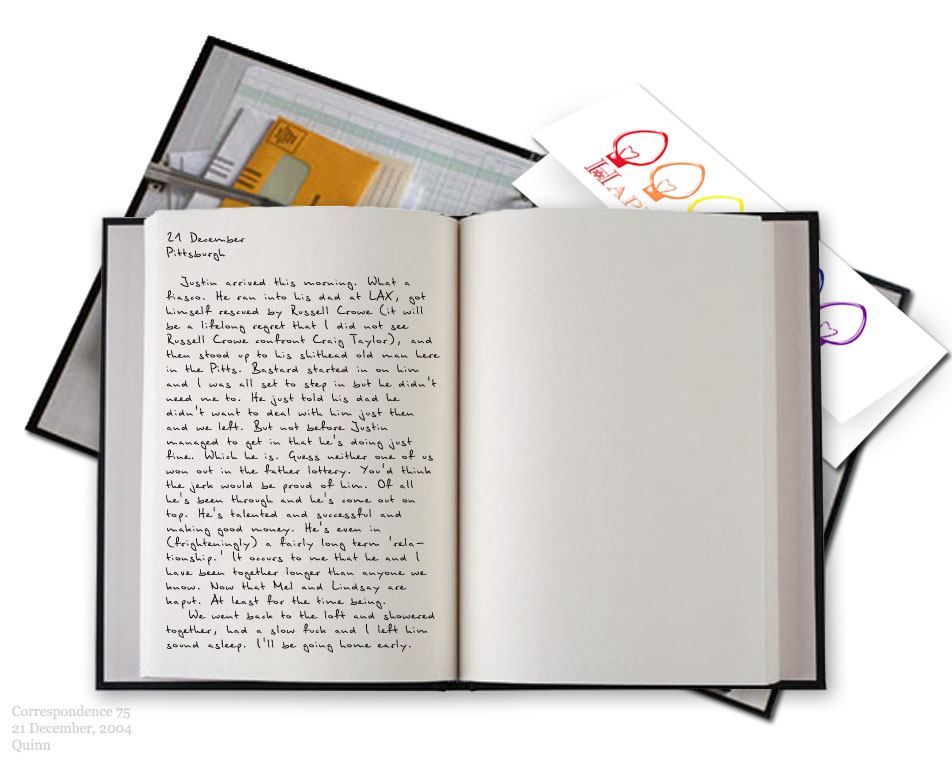 HAP
21 December
Pittsburgh
Justin arrived this morning. What a
fiasco. He ran into his dad at LAX, got
himself rescued by Russell Crowe (it will
be a lifelong regret that I did not see
Russell Crowe confront Craig Taylor), and
then stood up to his shithead old man here
in the Pitts. Bastard started in on him
and I was all set to step in but he didn't
need me to. He just told his dad he
didn't want to deal with him just then
and we left. But not before Justin
managed to get in that he's doing just
fine. Which he is. Guess neither one of us
won out in the father lottery. You'd think
the jerk would be proud of him. Of all
he's been through and he's come out on
top. He's talented and successful and
making good money. He's even in
(frighteningly) a fairly long term 'rela-
tionship.' It occurs to me that he and I
have been together longer than anyone we
know. Now that Mel and Lindsay are
kaput. At least for the time being.
We went back to the loft and showered
together, had a slow fuck and I left him
sound asleep. I'll be going home early.
Correspondence 75
21 December, 2004
Quinn